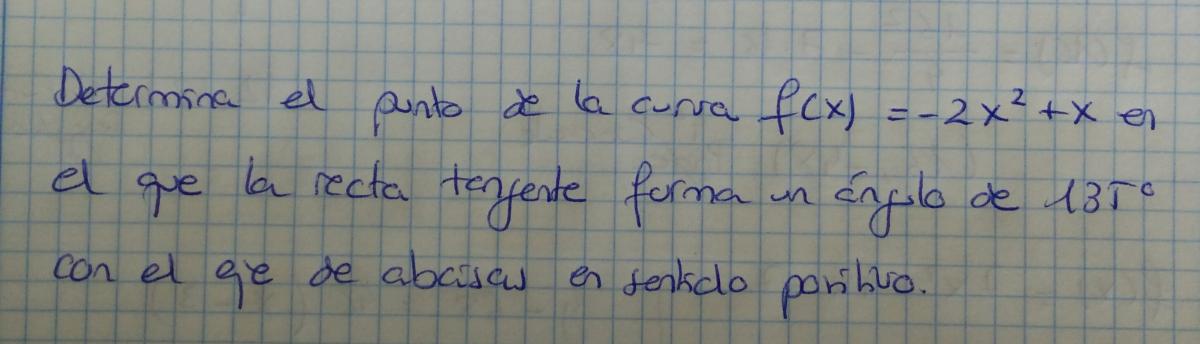 Determina el punto de la curva f(x) = -2x² + x en
el que la recta tangente forma un ángulo de 135°
con el eje de abcisas en sentido positivo.